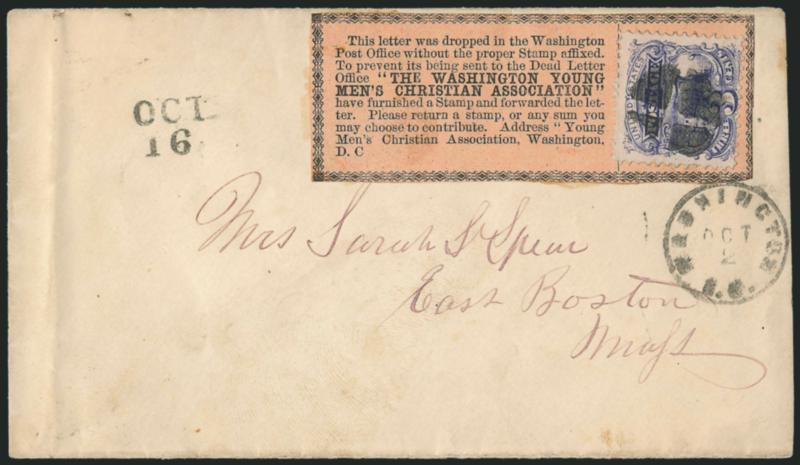 This letter was dropped in the Washington
Post Office without the proper Stamp affixed.
To prevent its being sent to the Dead Letter
Office "THE WASHINGTON YOUNG
MEN'S CHRISTIAN ASSOCIATION"
have furnished a Stamp and forwarded the let-
ter. Please return a stamp, or any sum you
may choose to contribute. Address "Young
Men's Christian Association, Washington,
D. C
OCT
16
WASHINGTON
OCT
2
D.C.
Mrs Sarah S Spear
East Boston
Mass